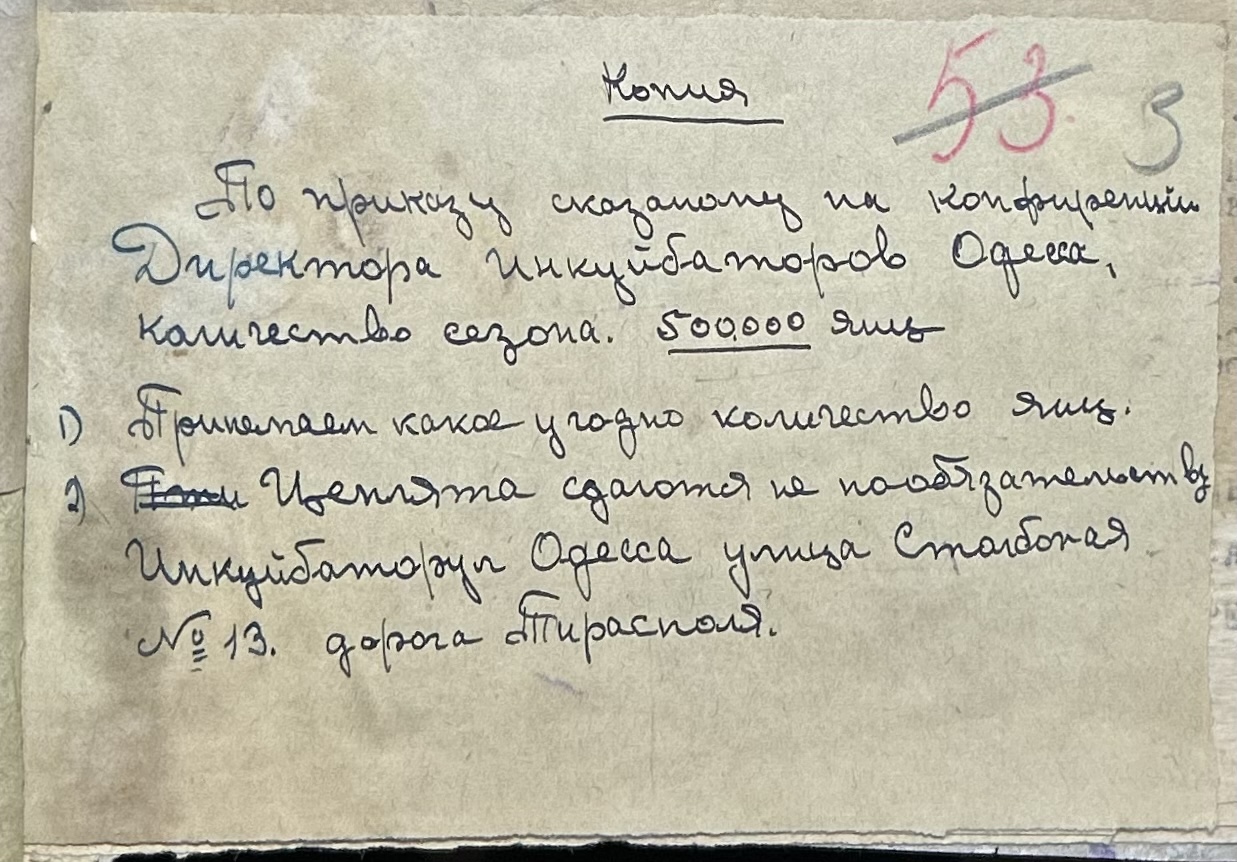 Копия
53 3
По приказу сказаному на конфиренции
Директора Инкуйбаторов Одесса,
количество сезона. 500.000 яиц
1) Принемаем какое угодно количество яиц.
2) Цеплята сдаются не по обязательству
Инкуйбаторул Одесса улица Столбовая
№ 13. дорога Тирасполя.